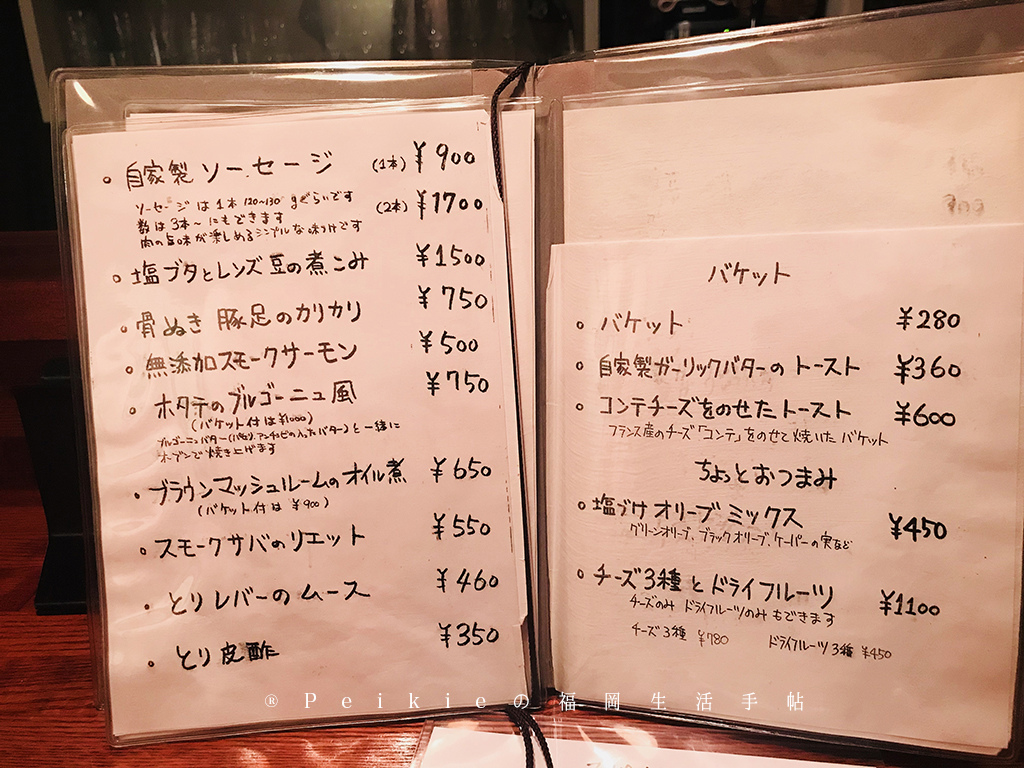 自家製ソーセージ (1本) ¥900
ソーセージは1本120~130gぐらいです (2本) ¥1700
数は3本~にもできます
肉の旨味が楽しめるシンプルな味つけです
塩ブタとレンズ豆の煮こみ ¥1500
骨ぬき豚足のカリカリ ¥750
無添加スモークサーモン ¥500
ホタテのブルゴーニュ風 ¥750
(バケット付は¥1000)
ブルゴーニュバター(パセリ、アンチョビの入ったバター)と一緒に
オーブンで焼き上げます
ブラウンマッシュルームのオイル煮 ¥650
(バケット付は ¥900)
スモークサバのリエット ¥550
とりレバーのムース ¥460
とり皮酢 ¥350
バケット
バケット ¥280
自家製ガーリックバターのトースト ¥360
コンテチーズをのせたトースト ¥600
フランス産のチーズ「コンテ」をのせて焼いたバケット
ちょっとおつまみ
塩づけオリーブミックス ¥450
グリーンオリーブ、ブラックオリーブ、ケーパーの実など
チーズ3種とドライフルーツ ¥1100
チーズのみ ドライフルーツのみもできます
チーズ3種 ¥780 ドライフルーツ3種 ¥450
®Peikieの福岡生活手帖